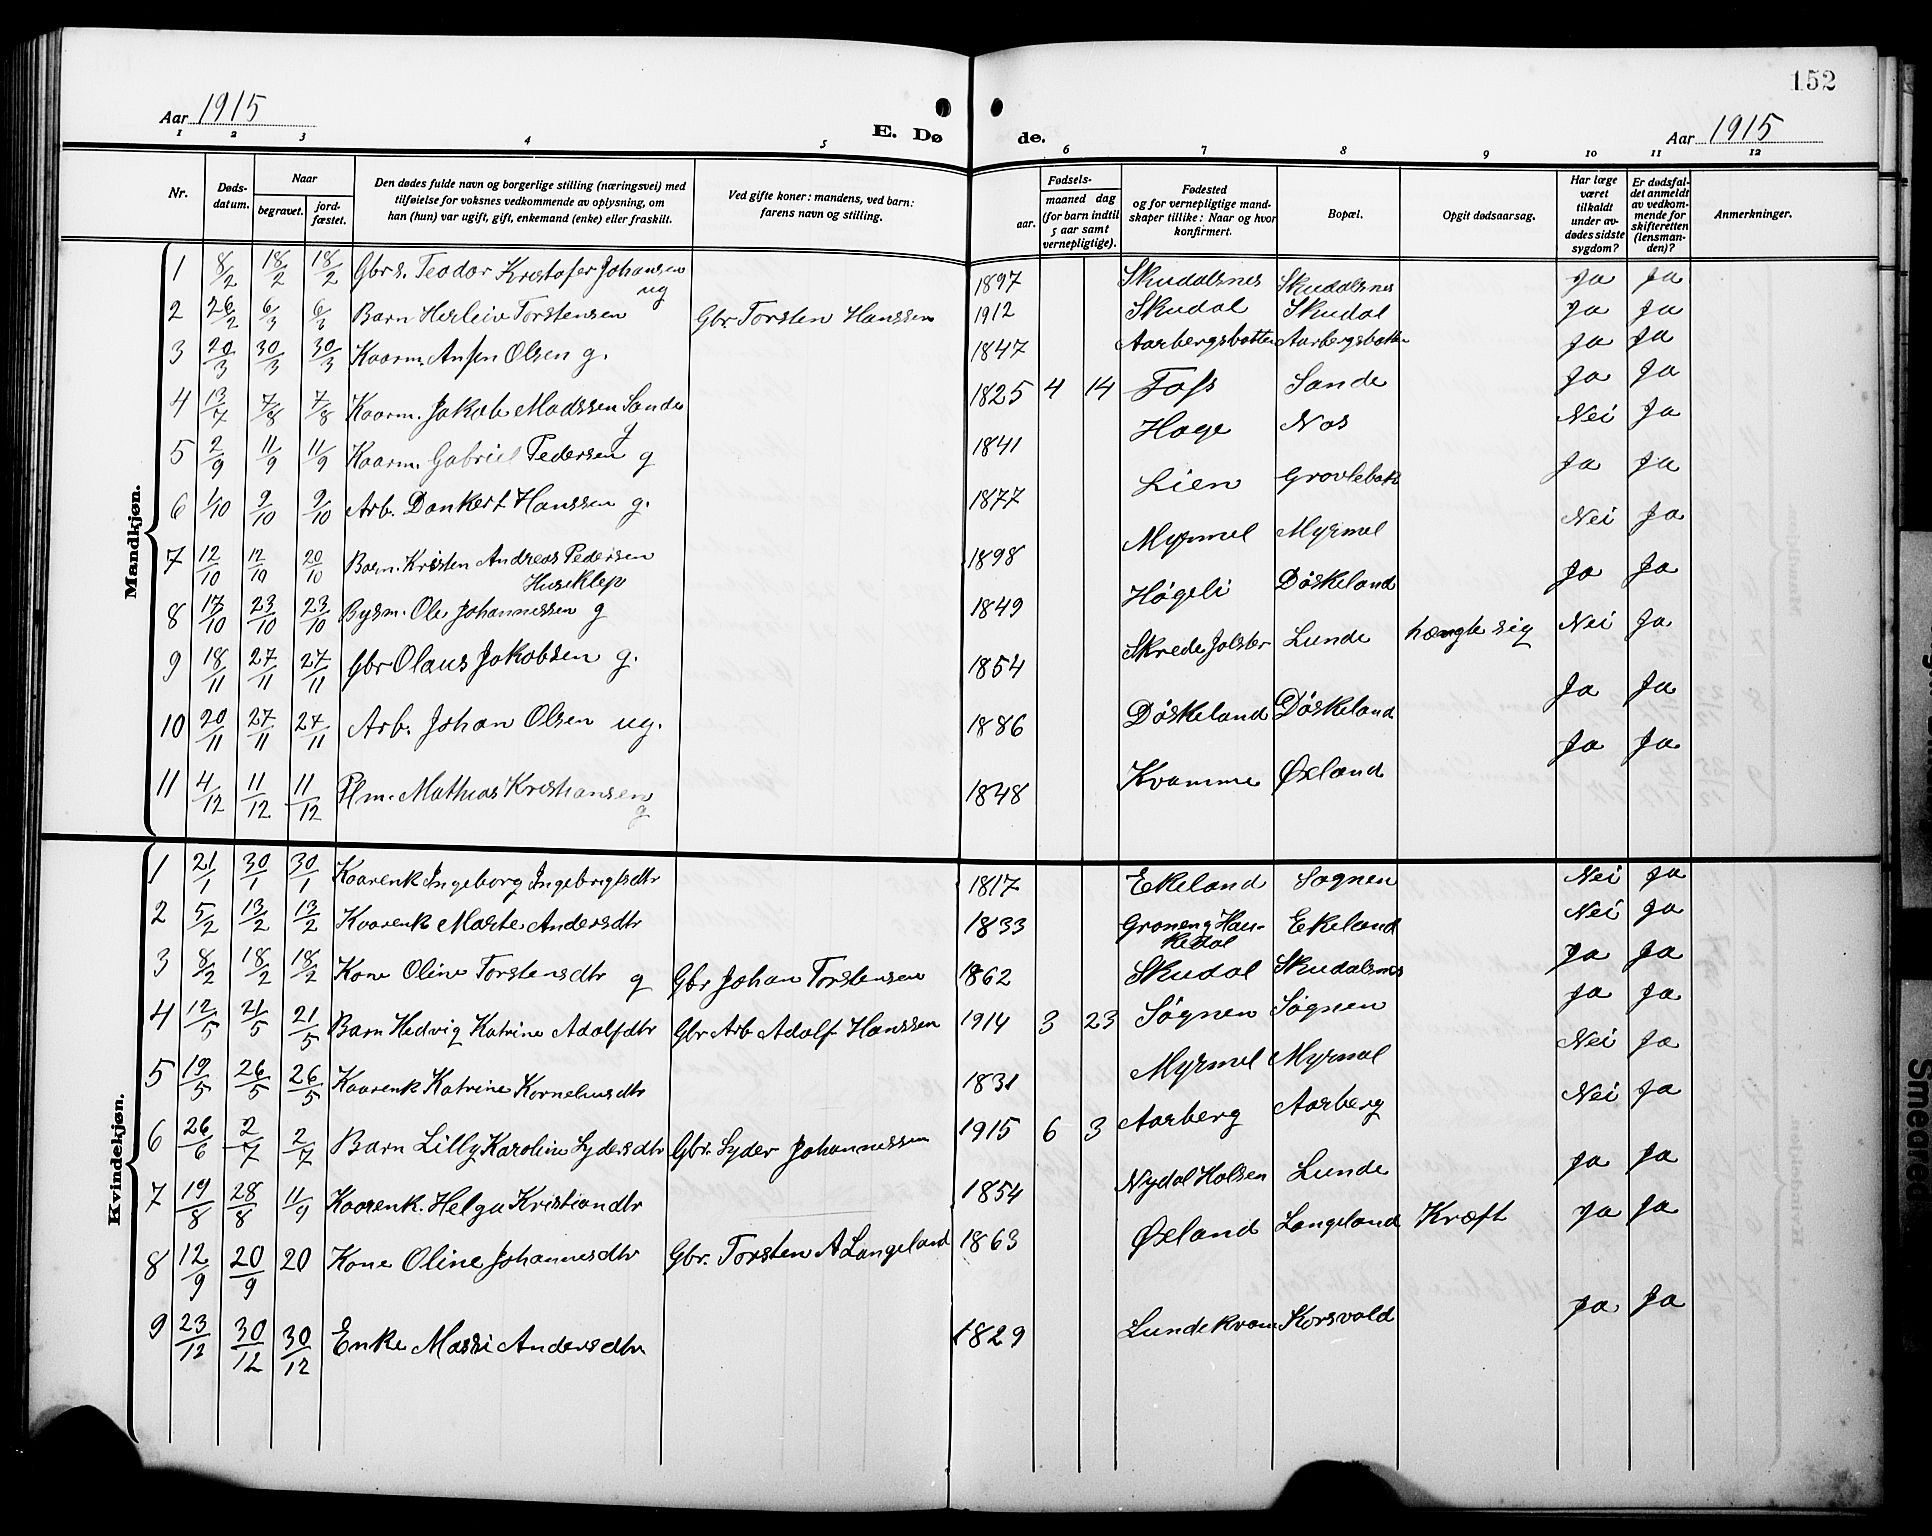 152
Aar 1915
E. Dø de.
Aar 1915
1 2 3 4 5 6 7 8 9 10 11 12
Nr.
Døds-datum.
Naar
begravet.
jord-fæstet.
Den dødes fulde navn og borgerlige stilling (næringsvei) med tilføielse for voksnes vedkommende av oplysning, om han (hun) var ugift, gift, enkemand (enke) eller fraskilt.
Ved gifte koner: mandens, ved barn: farens navn og stilling.
Fødsels-
aar.
maaned dag (for barn indtil 5 aar samt vernepligtige).
Fødested og for vernepligtige mand-skaper tillike: Naar og hvor konfirmert.
Bopæl.
Opgit dødsaarsag.
Har læge været tilkaldt under av-dødes sidste sygdom?
Er dødsfal-det anmeldt av vedkom-mende for skifteretten (lensman-den)?
Anmerkninger.
Mandkjøn.
1 8/2 18/2 18/2 Gbrs. Teodor Kristofer Johansen ug 1897 Skudalsnes Skudalsnes Ja Ja
2 26/2 6/3 6/3 Barn Herleiv Torstensen Gbr Torsten Hanssen 1912 Skudal Skudal Ja Ja
3 20/3 30/3 30/3 Kaarm. Olsen g. 1847 Aarbergsbotten Aarbergsbotten Ja Ja
4 13/7 7/8 7/8 Kaarm. Jakob Madssen Sande g 1825 4 14 Foss Sande Ja Ja
5 2/9 11/9 11/9 Kaarm. Gabriel Pedersen g 1841 Hage Nos Nei Ja
6 1/10 9/10 9/10 Arb. Dankert Hanssen g. 1877 Lien Grovlebak Ja Ja
7 12/10 12/10 20/10 Barn. Kristen Andreas Pedersen Huseklep 1898 Myrmel Myrmel Nei Ja
8 17/10 23/10 23/10 Bygsm. Ole Johannessen g 1849 Høgeli Døskeland Ja Ja
9 18/11 27/11 27/11 Gbr Olaus Jakobsen g. 1854 Skrede Jølster Lunde hængte sig Nei Ja
10 20/11 27/11 27/11 Arb. Johan Olsen ug. 1886 Døskeland Døskeland Ja Ja
11 4/12 11/12 11/12 Plm. Mathias Kristiansen g 1848 Kvamme Øxland Ja Ja
Kvindekjøn.
1 21/1 30/1 30/1 Kaarenk Ingeborg Ingebrigtsdtr 1817 Ekeland Sognen Nei Ja
2 5/2 13/2 13/2 Kaarenk Marte Andersdtr 1833 Groneng Haukedal Ekeland Nei Ja
3 8/2 18/2 18/2 Kone Oline Torstensdtr g Gbr Johan Torstensen 1862 Skudal Skudalsnes Ja Ja
4 12/5 21/5 21/5 Barn Hedvig Katrine Adolfdtr Gbr Arb Adolf Hanssen 1914 3 23 Søgnen Søgnen Ja Ja
5 19/5 26/5 26/5 Kaarenk Katrine Korneliusdtr 1831 Myrmel Myrmel Nei Ja
6 26/6 2/7 2/7 Barn Lilly Karoline Sydersdtr Gbr. Syder Johannessen 1915 6 3 Aarberg Aarberg Nei Ja
7 19/8 28/8 11/9 Kaarenk. Helga Kristiandtr 1854 Nydal Holsen Lunde Ja Ja
8 12/9 20/9 20 Kone Oline Johannesdtr Gbr. Torsten A Langeland 1863 Øxland Langeland Kræft Ja Ja
9 23/12 30/12 30/12 Enke Massi Andersdtr 1829 Lunde kvam Korsvold Ja Ja
Smedered